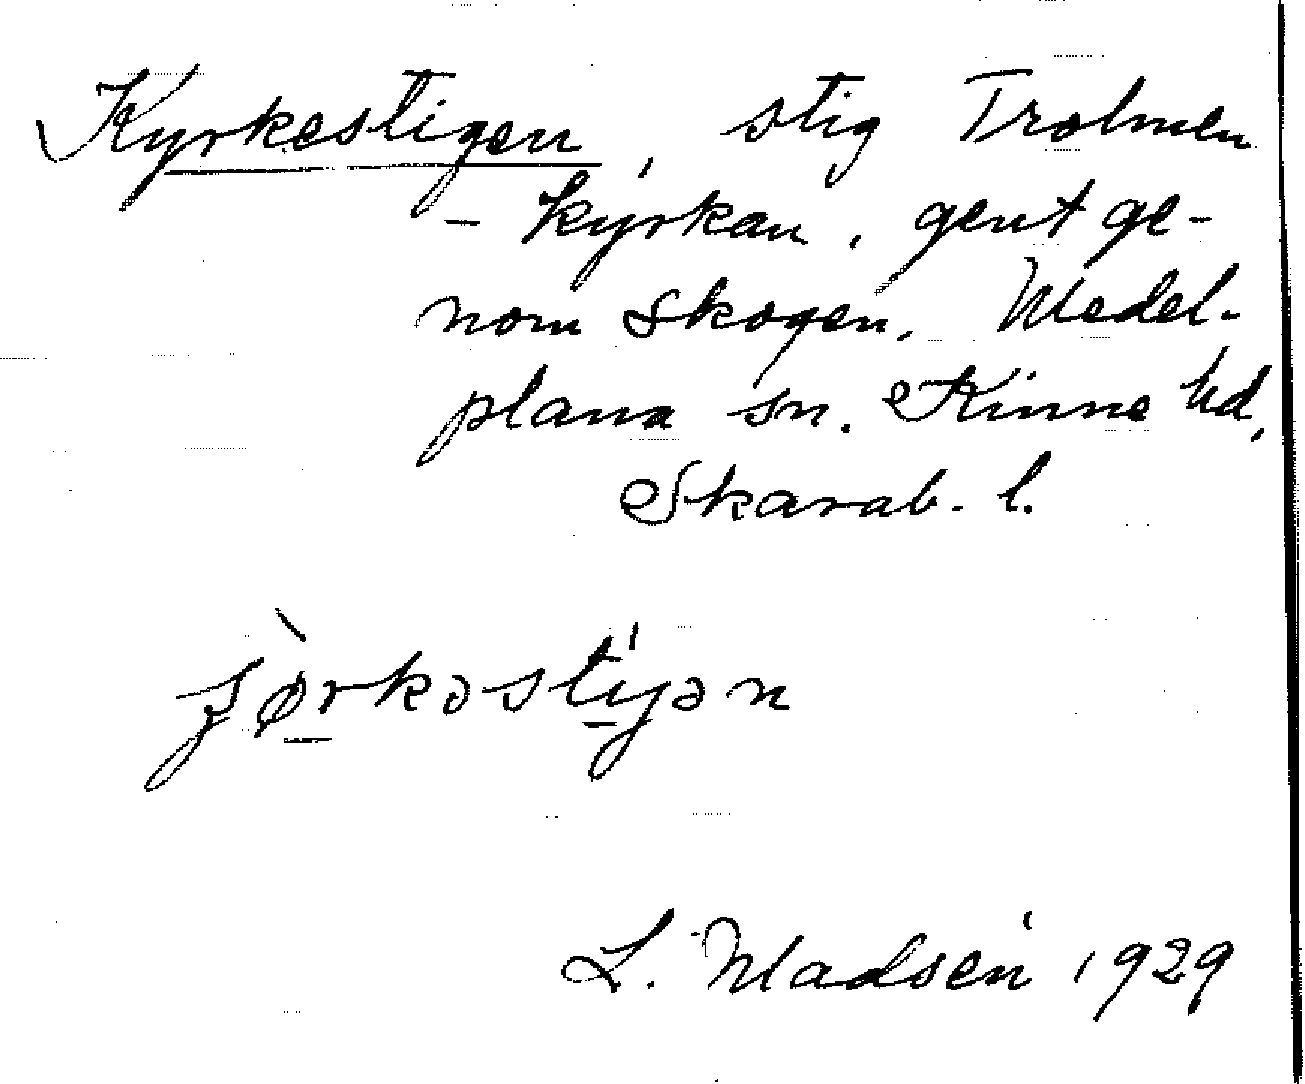 Kyrkestigen, stig Trolmen
- kyrkan, gent ge-
nom skogen, Medel-
plana sn. Kinne hd,
Skarab. l.
L. Madsen 1929